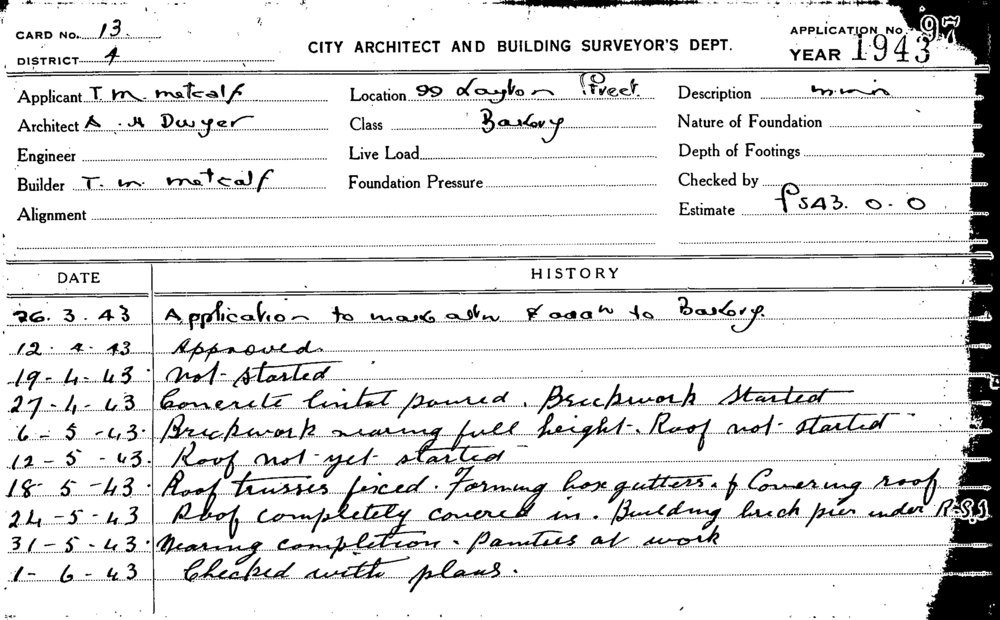 CARD No. 13.
APPLICATION No. 97
DISTRICT 4
CITY ARCHITECT AND BUILDING SURVEYOR'S DEPT.
YEAR 1943
Applicant T. M. Metcalf
Location 99 Layton Street.
Description
Architect A. H Dwyer
Class Bakery
Nature of Foundation
Engineer
Live Load
Depth of Footings
Builder T. M. Metcalf
Foundation Pressure
Checked by
Alignment
Estimate £543. 0. 0
DATE
HISTORY
26. 3. 43 Application to make altn & addn to Bakery.
12. 4. 43 Approved
19-4-43. Not started
27-4-43 Concrete lintel poured. Brickwork started
6-5-43. Brickwork nearing full height. Roof not started
12-5-43. Roof not yet started
18 5-43. Roof trusses fixed. Forming box gutters. & Covering roof
24-5-43 Roof completely covered in. Building brick pier under R.S.J
31-5-43. Nearing completion. Painters at work
1-6-43 Checked with plans.